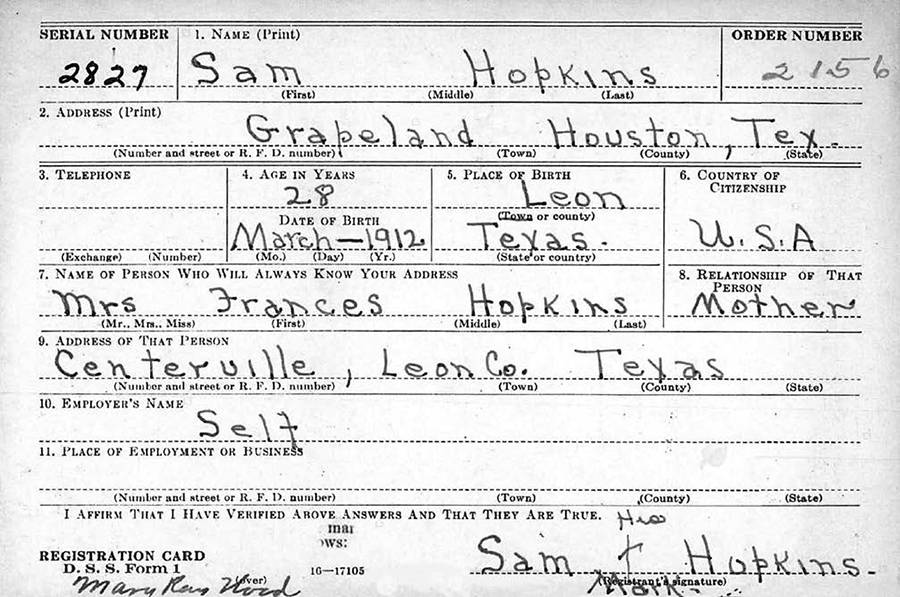 SERIAL NUMBER 1. NAME (Print) ORDER NUMBER
2827 Sam Hopkins 2156
(First) (Middle) (Last)
2. ADDRESS (Print)
Grapeland Houston, Tex.
(Number and street or R. F. D. number) (Town) (County) (State)
3. TELEPHONE 4. AGE IN YEARS 5. PLACE OF BIRTH 6. COUNTRY OF CITIZENSHIP
28 Leon
DATE OF BIRTH (Town or county)
March—1912 Texas. U.S.A
(Exchange) (Number) (Mo.) (Day) (Yr.) (State or country)
7. NAME OF PERSON WHO WILL ALWAYS KNOW YOUR ADDRESS 8. RELATIONSHIP OF THAT PERSON
Mrs Frances Hopkins Mother
(Mr., Mrs., Miss) (First) (Middle) (Last)
9. ADDRESS OF THAT PERSON
Centerville, Leon Co. Texas
(Number and street or R. F. D. number) (Town) (County) (State)
10. EMPLOYER'S NAME
Self
11. PLACE OF EMPLOYMENT OR BUSINESS
(Number and street or R. F. D. number) (Town) (County) (State)
I AFFIRM THAT I HAVE VERIFIED ABOVE ANSWERS AND THAT THEY ARE TRUE.
His
REGISTRATION CARD Sam Hopkins.
D. S. S. Form 1 (over) 16—17105 (Registrant's signature)
Mark.
Mary